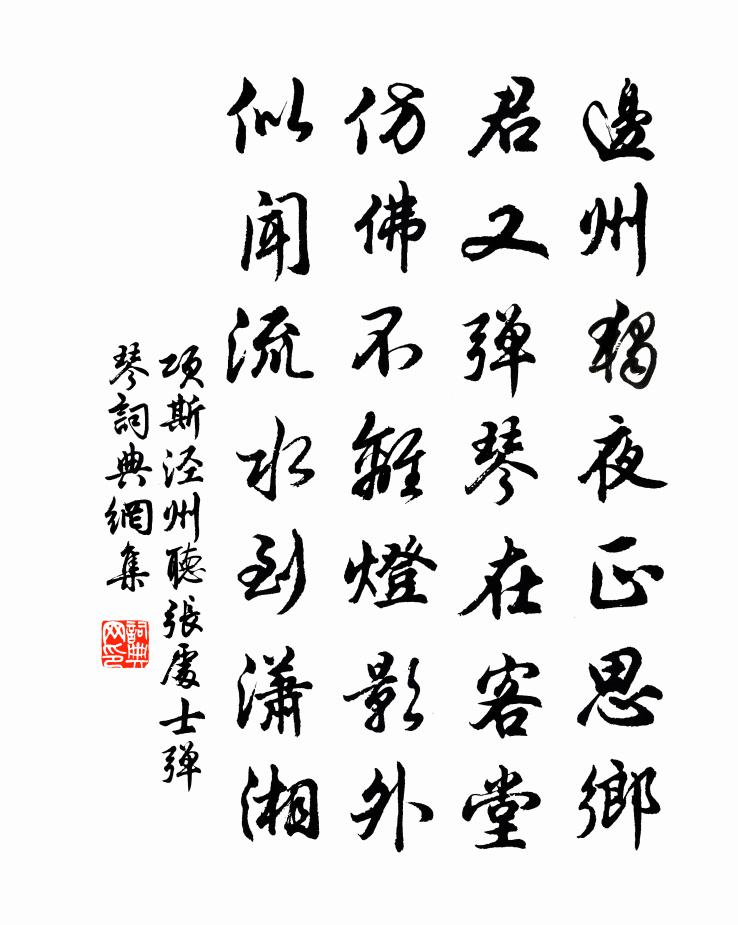 邊州獨夜正思鄉
君又弹琴在客堂
仿佛不離燈影外
似闻流水到瀟湘
項斯泾州聽張處士弹
琴詞典網集
詞典网印